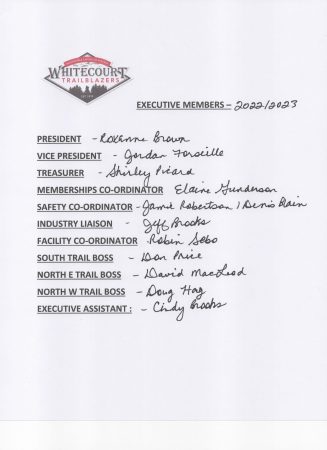 WHITECOURT
TRAILBLAZERS
EXECUTIVE MEMBERS – 2022/2023
PRESIDENT - Roxanne Brown
VICE PRESIDENT - Jordan Forseille
TREASURER - Shirley Picard
MEMBERSHIPS CO-ORDINATOR Elaine Gunderson
SAFETY CO-ORDINATOR - Jamie Robertson / Denis Blain
INDUSTRY LIAISON - Jeff Brooks
FACILITY CO-ORDINATOR Robin Sobo
SOUTH TRAIL BOSS - Don Price
NORTH E TRAIL BOSS - David MacLeod
NORTH W TRAIL BOSS - Doug Hag
EXECUTIVE ASSISTANT : - Cindy Brooks